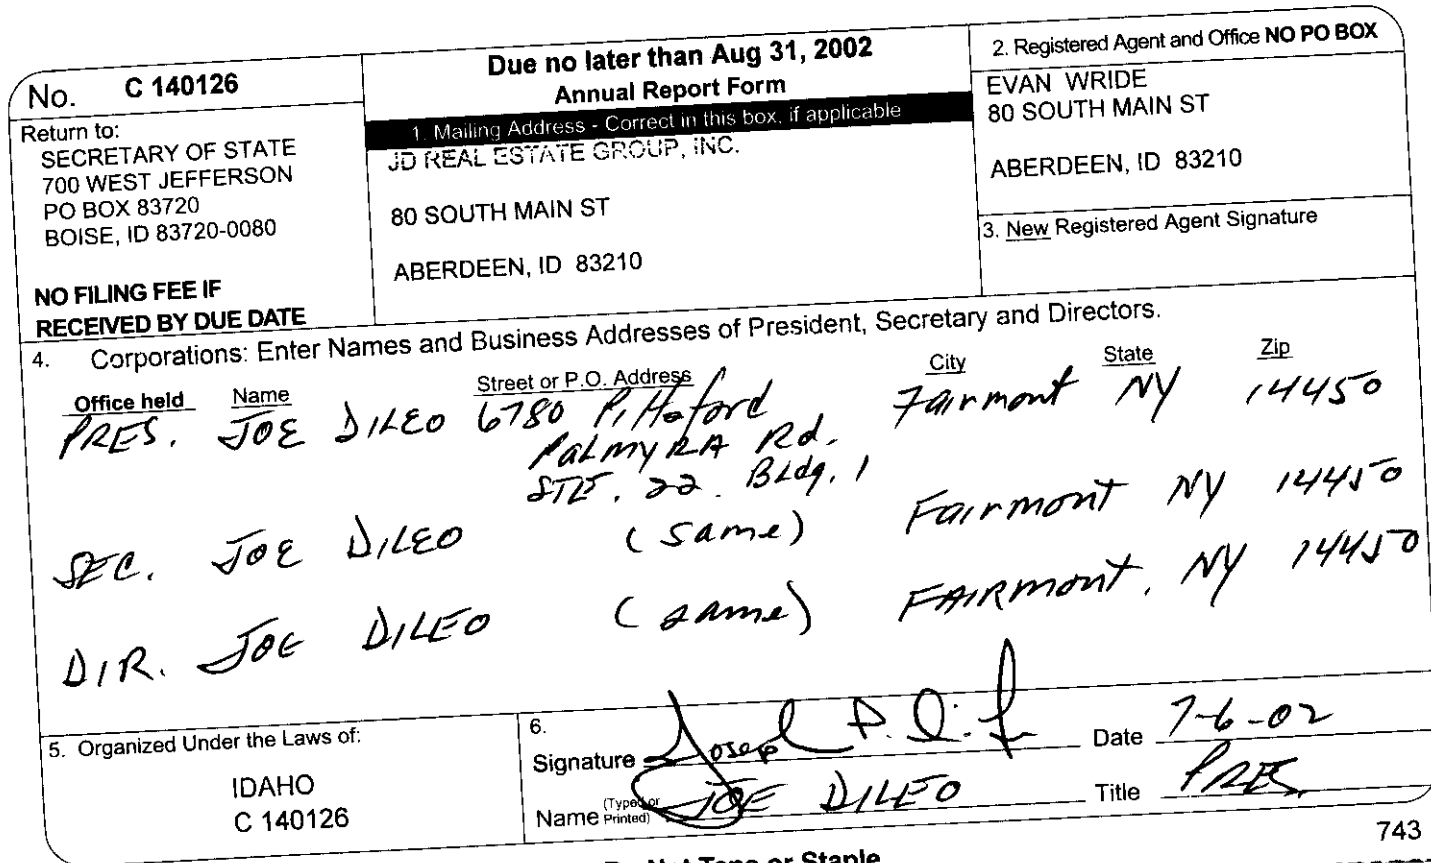 No. C 140126
Return to:
SECRETARY OF STATE
700 WEST JEFFERSON
PO BOX 83720
BOISE, ID 83720-0080
NO FILING FEE IF
RECEIVED BY DUE DATE
Due no later than Aug 31, 2002
Annual Report Form
1. Mailing Address - Correct in this box, if applicable
JD REAL ESTATE GROUP, INC.
80 SOUTH MAIN ST
ABERDEEN, ID 83210
2. Registered Agent and Office NO PO BOX
EVAN WRIDE
80 SOUTH MAIN ST
ABERDEEN, ID 83210
3. New Registered Agent Signature
4. Corporations: Enter Names and Business Addresses of President, Secretary and Directors.
Office held Name Street or P.O. Address City State Zip
PRES. JOE DILEO 6780 Pittsford Fairmont NY 14450
PalmyRA Rd.
STE. 22 Bldg. 1
SEC. JOE DILEO (same) Fairmont NY 14450
DIR. JOE DILEO (same) FAIRmont, NY 14450
5. Organized Under the Laws of:
IDAHO
C 140126
6.
Signature Date 7-6-02
Name (Typed or Printed) JOE DILEO Title PRES.
743
Do Not Tape or Staple